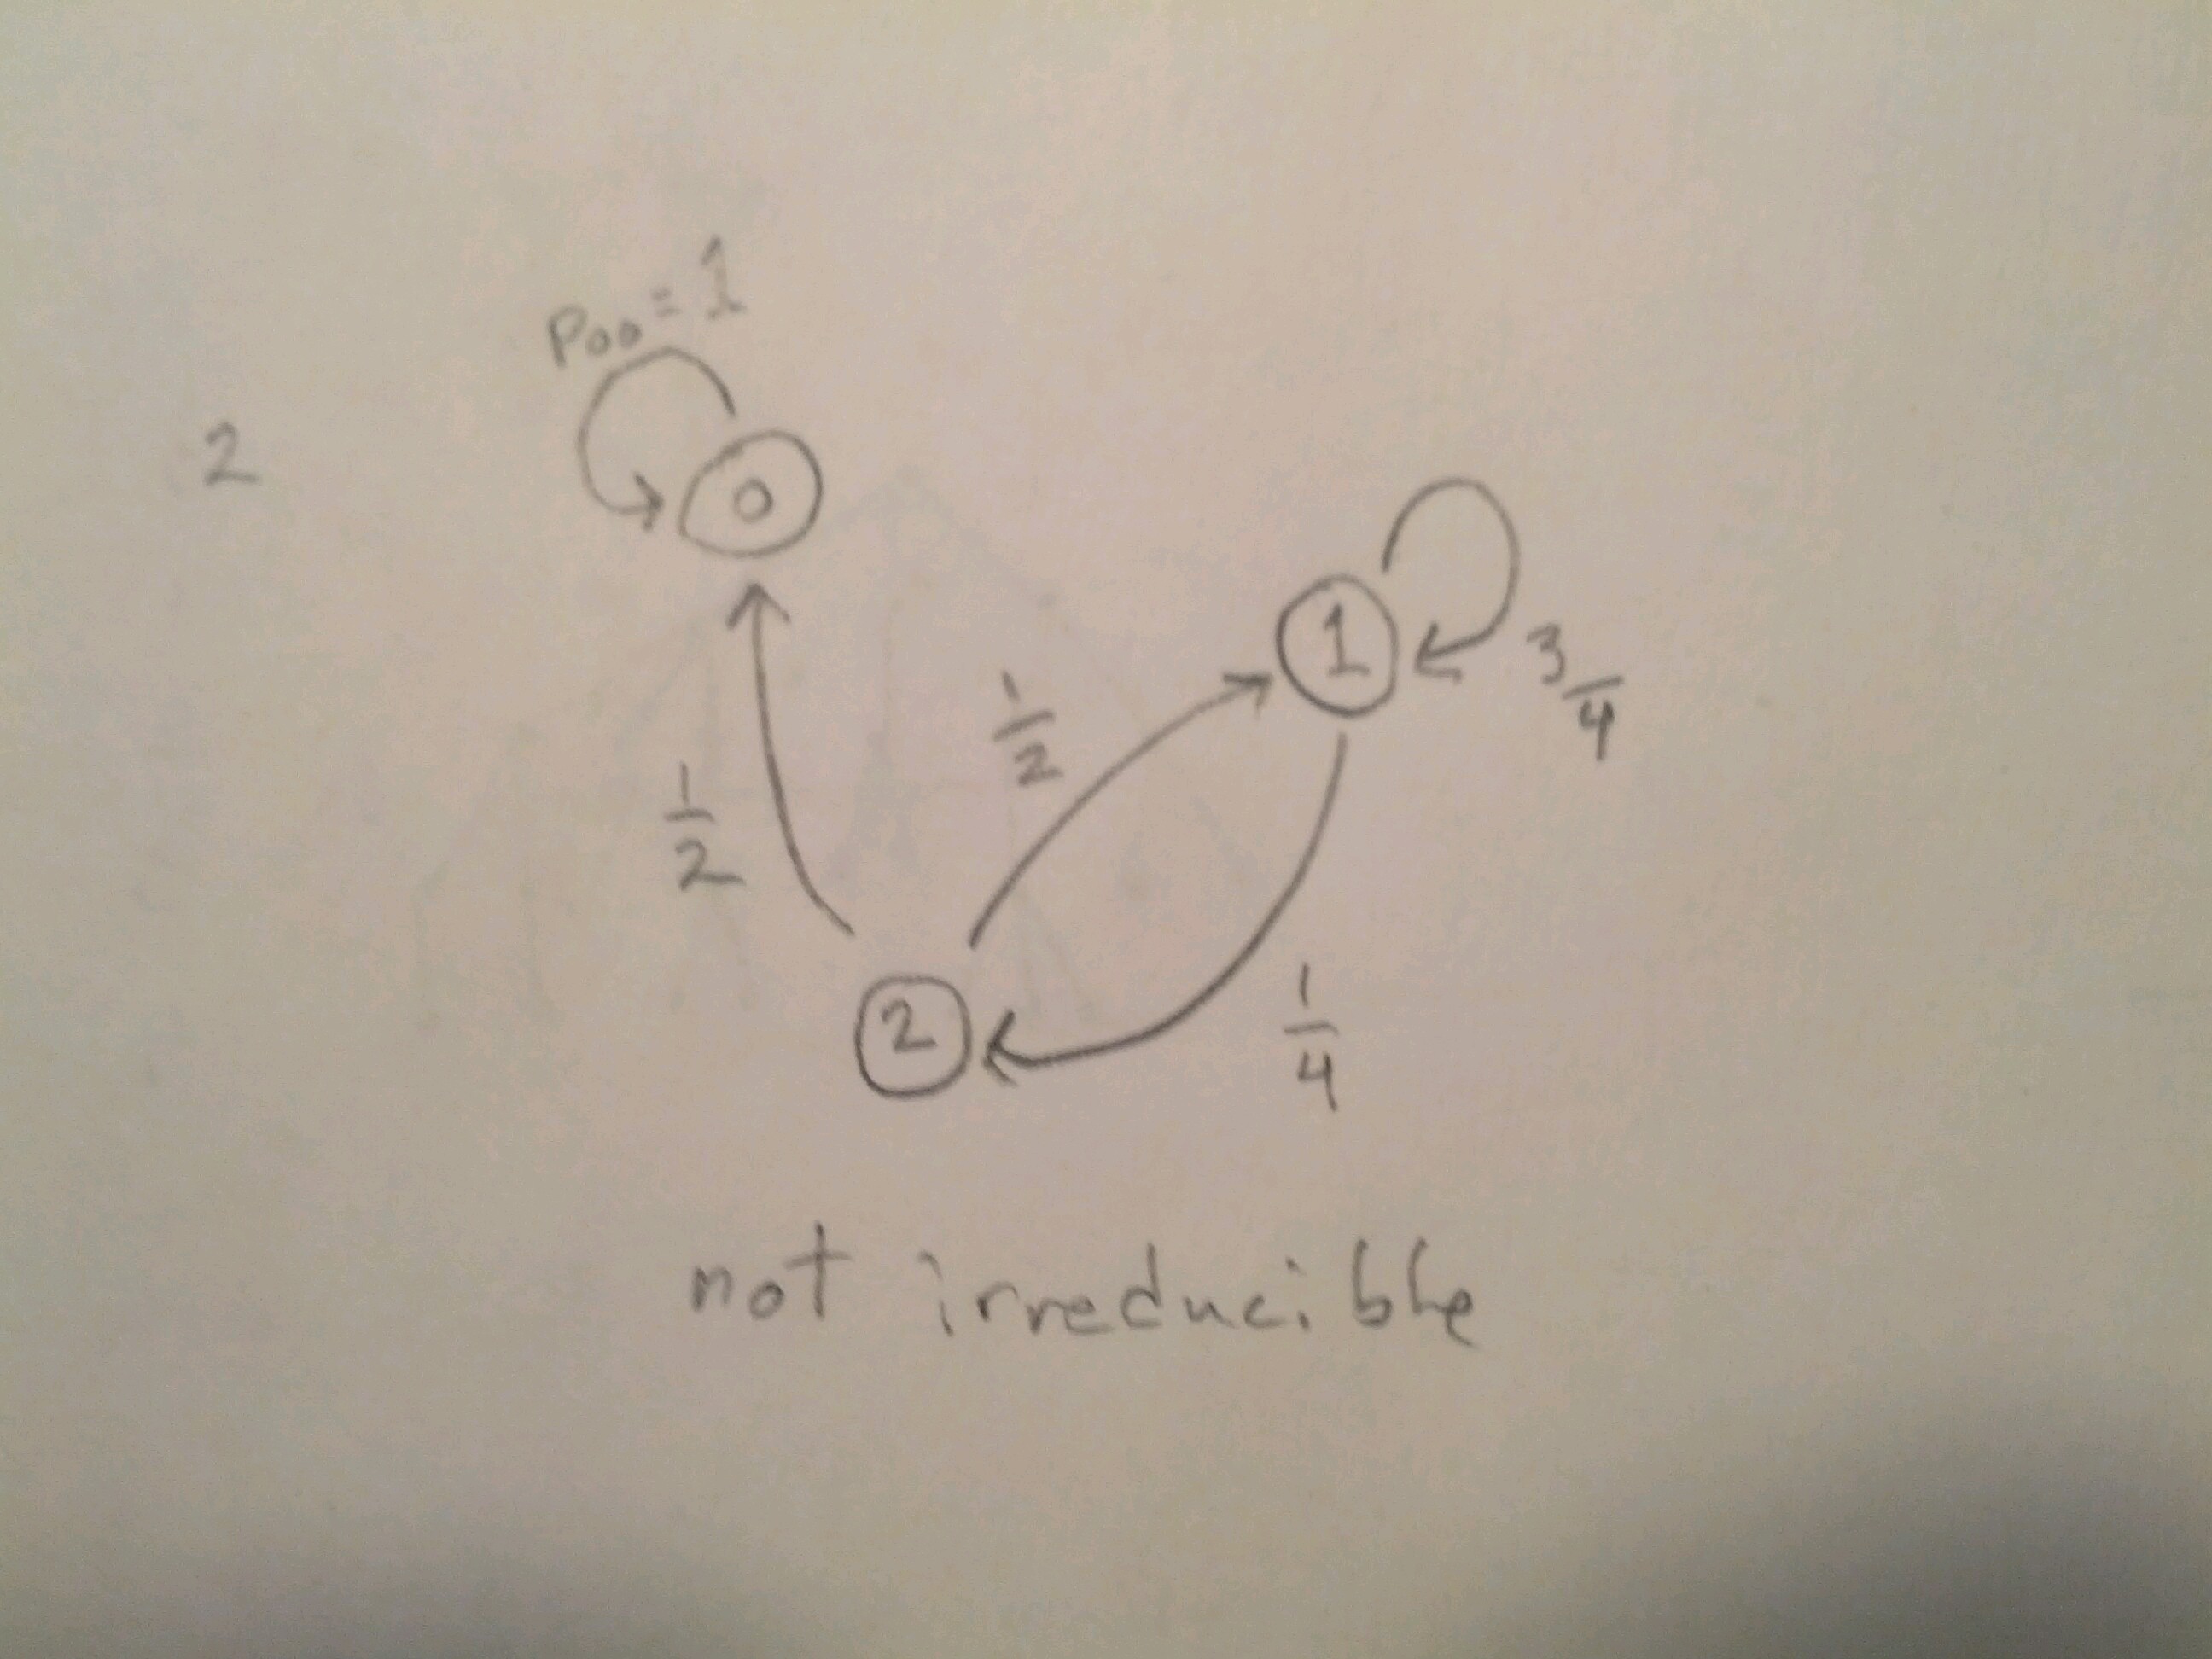 P₀₀ = 1
2
0
1
3/4
1/2
1/2
2
1/4
not irreducible